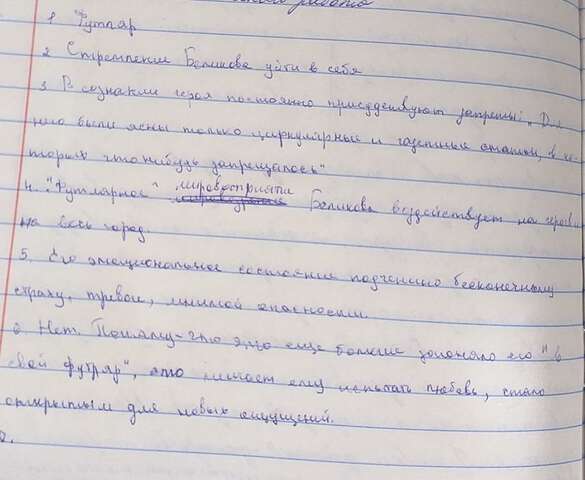 работа
1 Футляр
2 Стремление Беликова уйти в себя
3 В сознании героя постоянно присудствуют запреты: „Дл
него были ясны только циркулярные и газетные статьи, в ко
торых что нибудь запрещалось"
4. "Футлярное" мировосприяти Беликова воздействует на
на весь город.
5. Его эмоциональное состояние подчинено бесконечному
страху, тревоге, мнимой опасности.
6 Нет. Потому-что это еще больше загоняло его "в
свой футляр", это мешает ему испытать любовь, стать
открытым для новых ощущений.